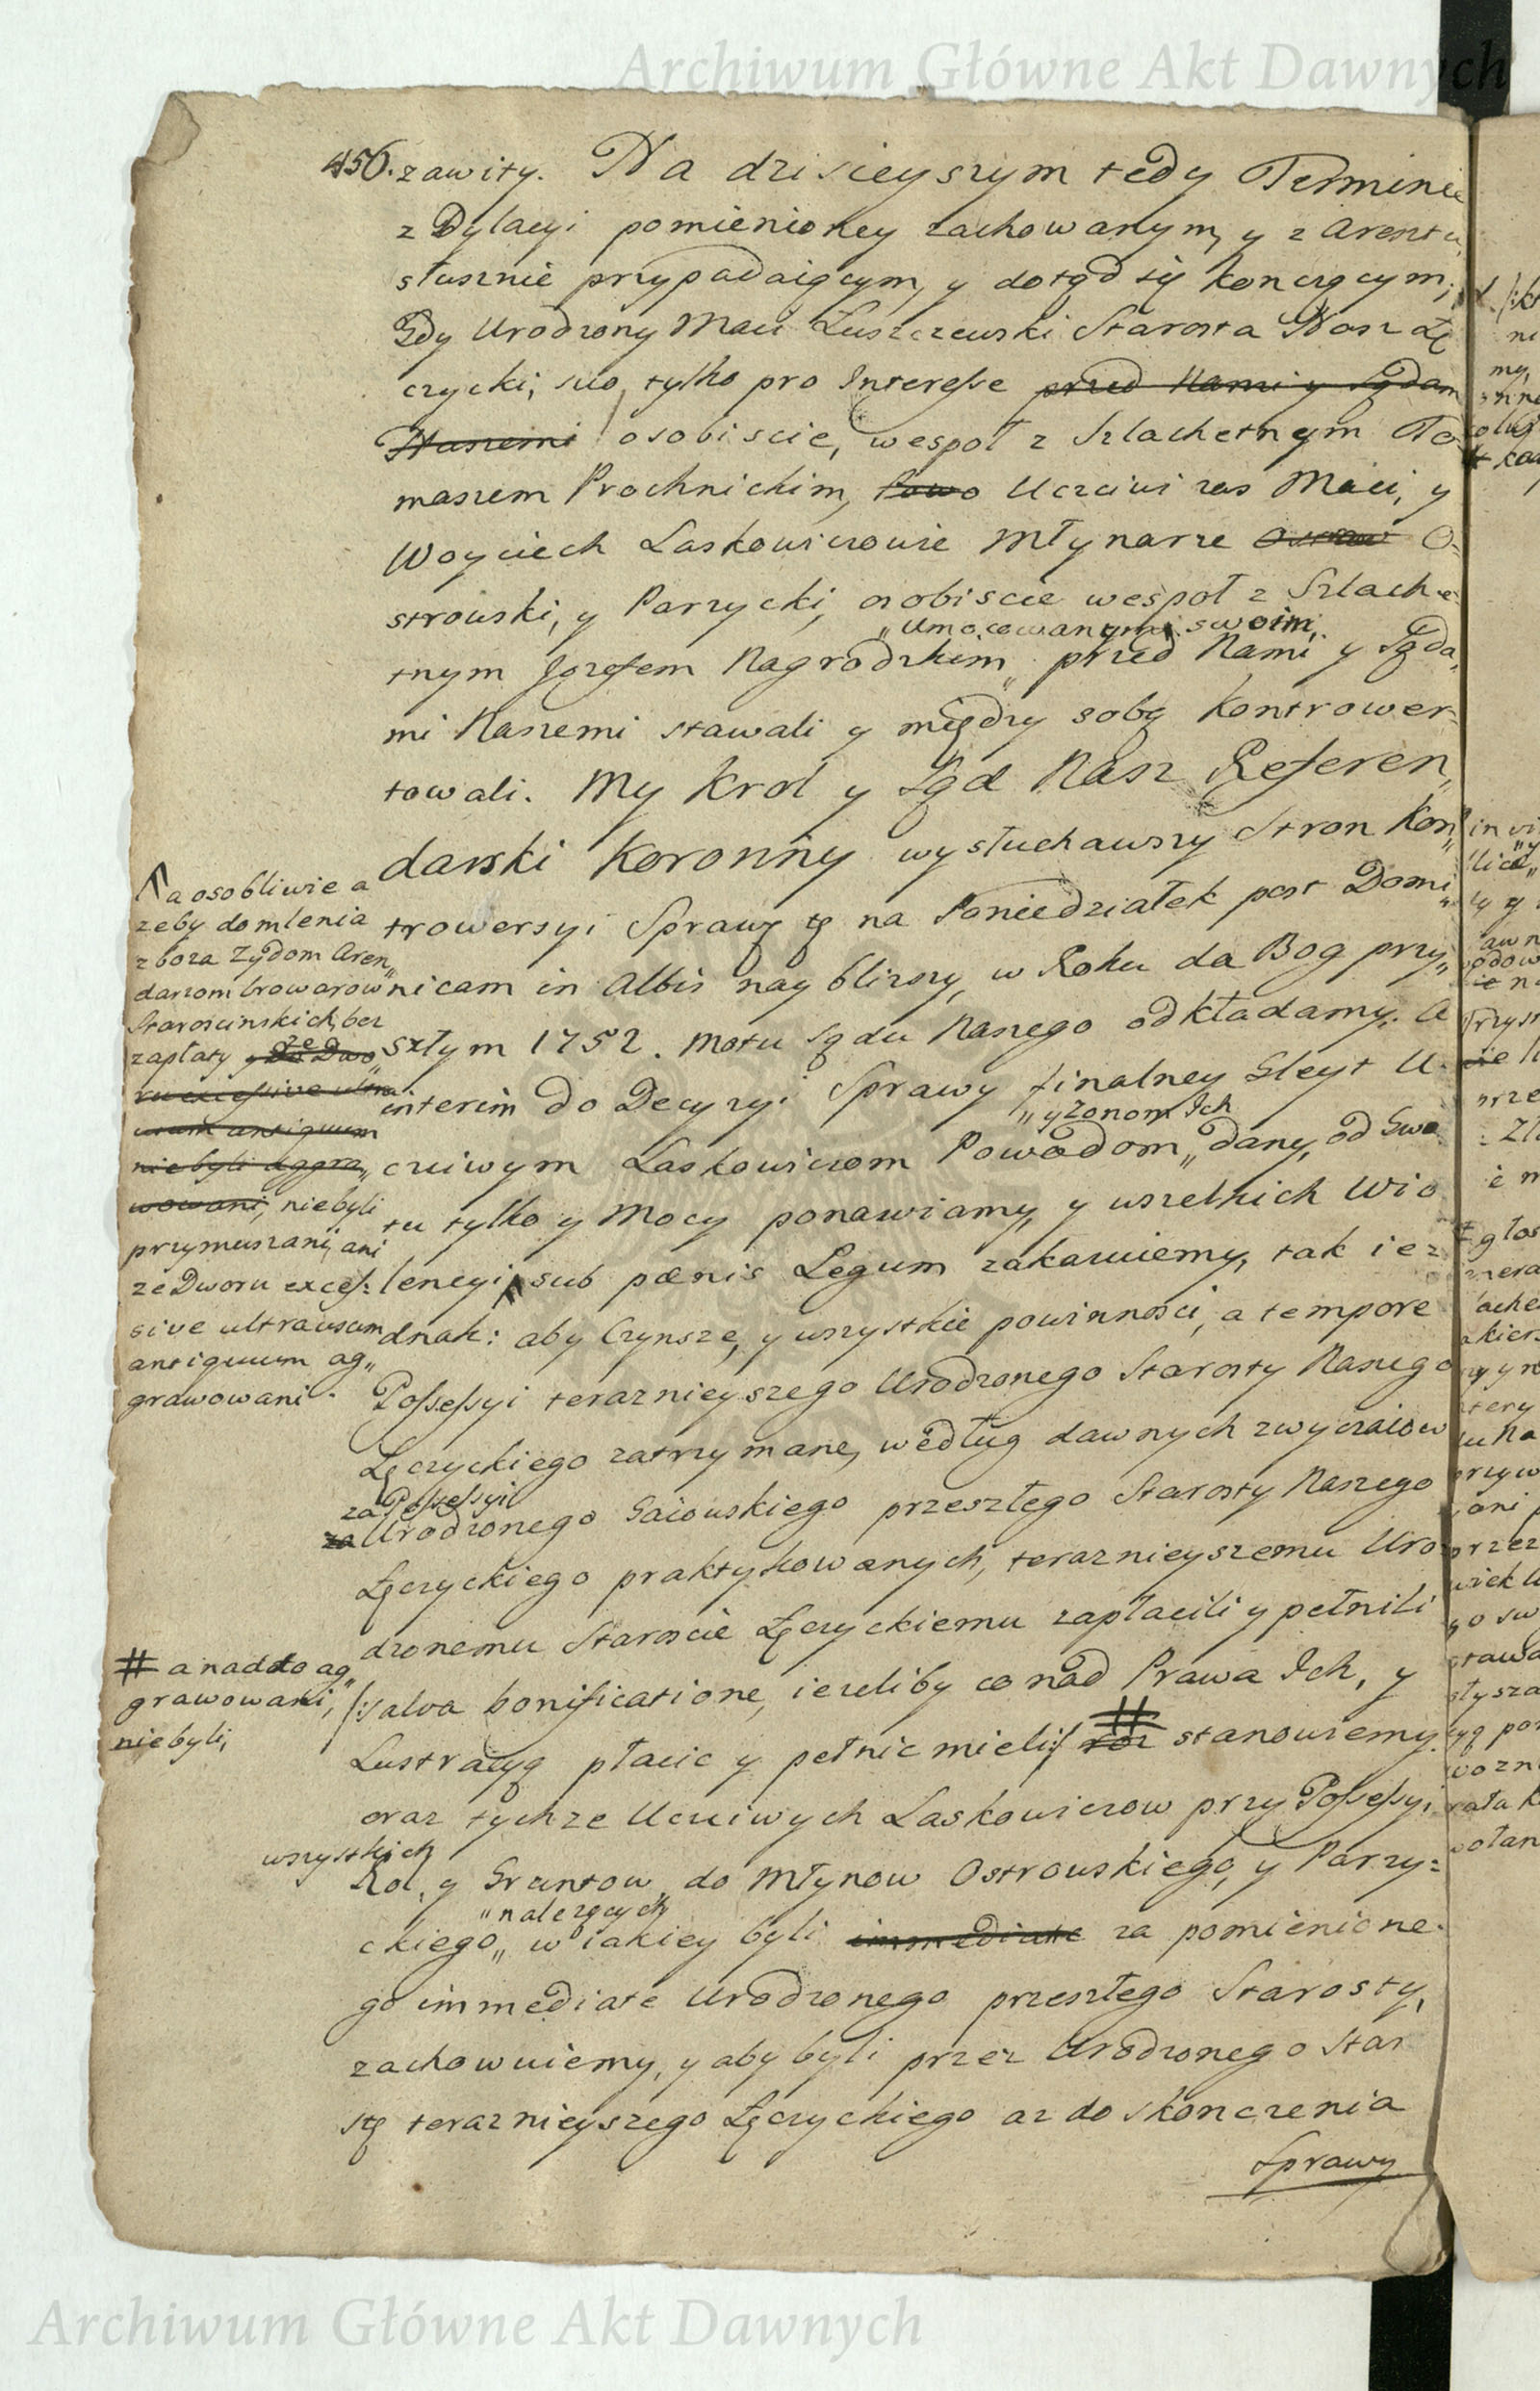 Archiwum Główne Akt Dawnych
456. zawity. Na dzisieyszym tedy Terminie
z Dylacyi pomienioney zachowanym, y z Aresztu
słusznie przypadaiącym, y dotąd się konczącym,
Gdy Urodzony Maci Łuszczewski Starosta Nasz Łę
czycki, suo tylko pro Interesse przed Nami y Sądam
Naszemi osobiscie, wespoł z Szlachetnym To
maszem Prochnickim, Powo Uczciwi zas Maci, y
Woyciech Laskowiczowie Młynarze Ostrow O=
strowski, y Parzycki, osobiscie wespoł z Szlache
„Umocowanymi swoimi,
tnym Jozefem Nagrodzkim„ przed Nami y Sąda,
mi Naszemi stawali y między sobą kontrower=
towali. My Krol y Sąd Nasz Referen„
darski Koronny wysłuchawszy Stron Kon„
trowersyi Sprawę tę na Poniedziałek post Domi„
nicam in Albis nayblizszy, w Roku da Bog przy„
szłym 1752. motu Sądu Naszego odkładamy. A
interim do Decyzyi Sprawy finalney Gleyt U=
„y Zonom Ich
czciwym Laskowiczom Powodom„ dany, od Gwa
tu tylko y Mocy ponawiamy, y wszelkich Wio
lencyi sub pœnis Legum zakazuiemy, tak iez
dnak: aby Czynsze, y wszystkie powinnosci, a tempore
Possessyi teraznieyszego Urodzonego Starosty Naszego
Łęczyckiego zatrzymane, według dawnych zwyczaiow
za Possessyi
za Urodzonego Gaiowskiego przeszłego Starosty Naszego
Łęczyckiego praktykowanych, teraznieyszemu Uro
dzonemu Staroscie Łęczyckiemu zapłacili y pełnili
/:salva bonificatione, iezeliby co nad Prawa Ich, y
Lustracyą płacic y pełnic mieli:/ # stanowiemy.
oraz tychze Uczciwych Laskowiczow przy Possessyi
wszystkich
Rol, y Gruntow„ do Młynow Ostrowskiego, y Parzy=
„nalezących
ckiego„ w iakiey byli immediate za pomienione=
go immediate Urodzonego przeszłego Starosty,
zachowuiemy, y aby byli przez Urodzonego Staro
stę terazniejszego Łęczyckiego az do skonczenia
Sprawy
a osobliwie a
zeby do mlenia
zboza Zydom Aren„
darzom browarow
Staroscinskich, bez
zapłaty y ze Dwo„
ru excessive ultra
usum antiquum
niebyli aggra„
wowani, niebyli
przymuszani, ani
ze Dworu exces=
sive ultra usum
antiquum ag„
grawowani.
# a nadto ag„
grawowani,
niebyli,
Archiwum Główne Akt Dawnych